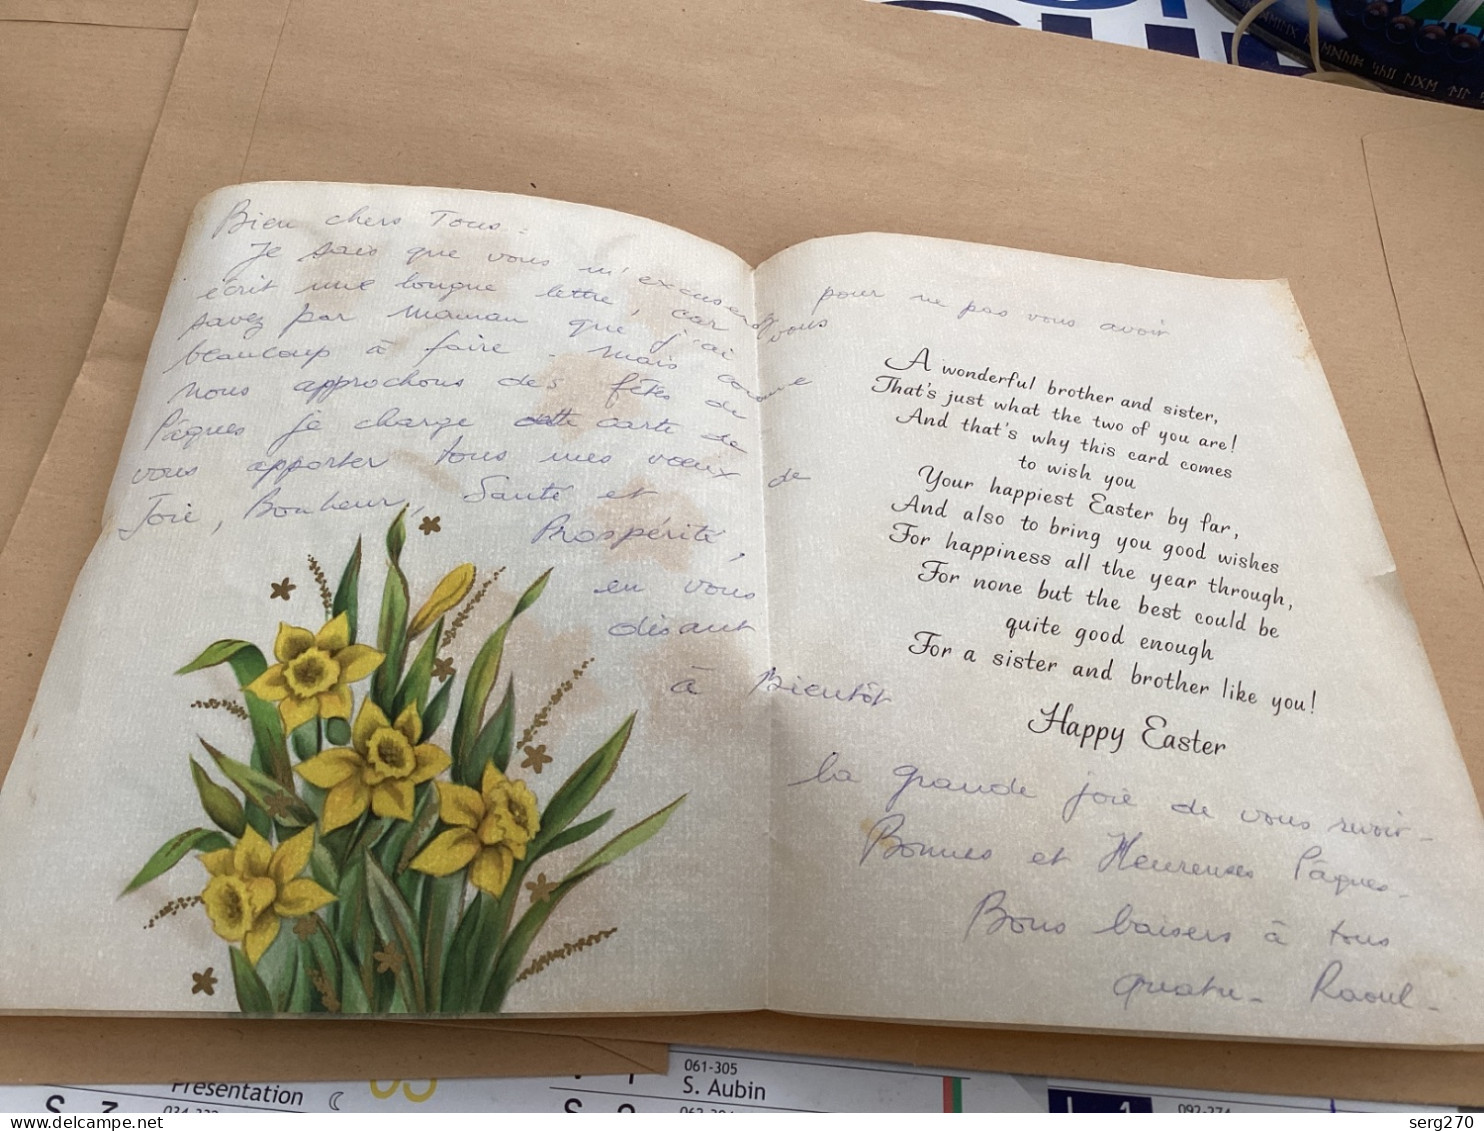 Bien chers Tous :
Je sais que vous m'excuserez pour ne pas vous avoir
écrit une longue lettre, car vous
savez par maman que j'ai
beaucoup à faire - Mais comme
nous approchons des fêtes de
Pâques je charge cette carte de
vous apporter tous mes vœux de
Joie, Bonheur, Santé et
Prospérité,
en vous
disant
à Bientôt
A wonderful brother and sister,
That's just what the two of you are!
And that's why this card comes
to wish you
Your happiest Easter by far,
And also to bring you good wishes
For happiness all the year through,
For none but the best could be
quite good enough
For a sister and brother like you!
Happy Easter
la grande joie de vous revoir -
Bonnes et Heureuses Pâques -
Bons baisers à tous
quatre - Raoul -
Présentation
061-305
S. Aubin
delcampe.net
serg270